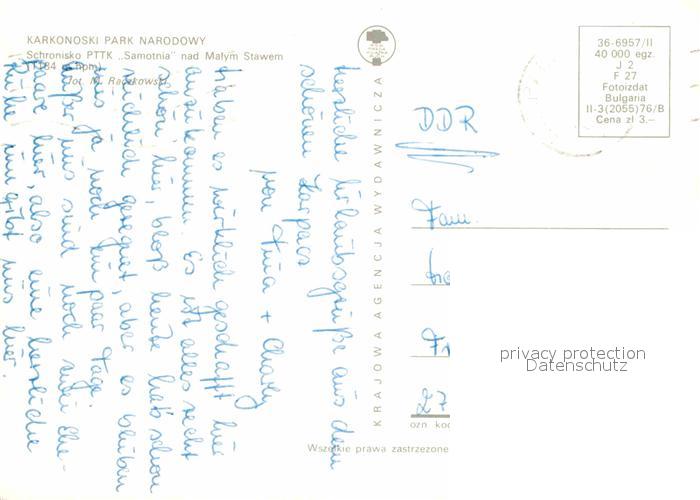 KARKONOSKI PARK NARODOWY
Schronisko PTTK „Samotnia" nad Małym Stawem
(1184 m npm)
fot. M. Raczkowski
36-6957/II
40 000 egz.
J 2
F 27
Fotoizdat
Bulgaria
II-3(2055)76/B
Cena zł 3.—
KRAJOWA AGENCJA WYDAWNICZA
DDR
Fam.
Fr
27
ozn kod
Wszelkie prawa zastrzeżone
privacy protection
Datenschutz
Herzliche Urlaubsgrüße aus dem
schönen Karpacz
von Tina + Charly
Haben es wirklich geschafft hier
anzukommen. Es ist alles recht
schön hier, bloß heute hat's schon
reichlich geregnet, aber es bleiben
uns ja noch ein paar Tage.
Außer uns sind noch zwei Ehe-
paare hier, also eine herzliche
Ruhe nun gibt uns hier.